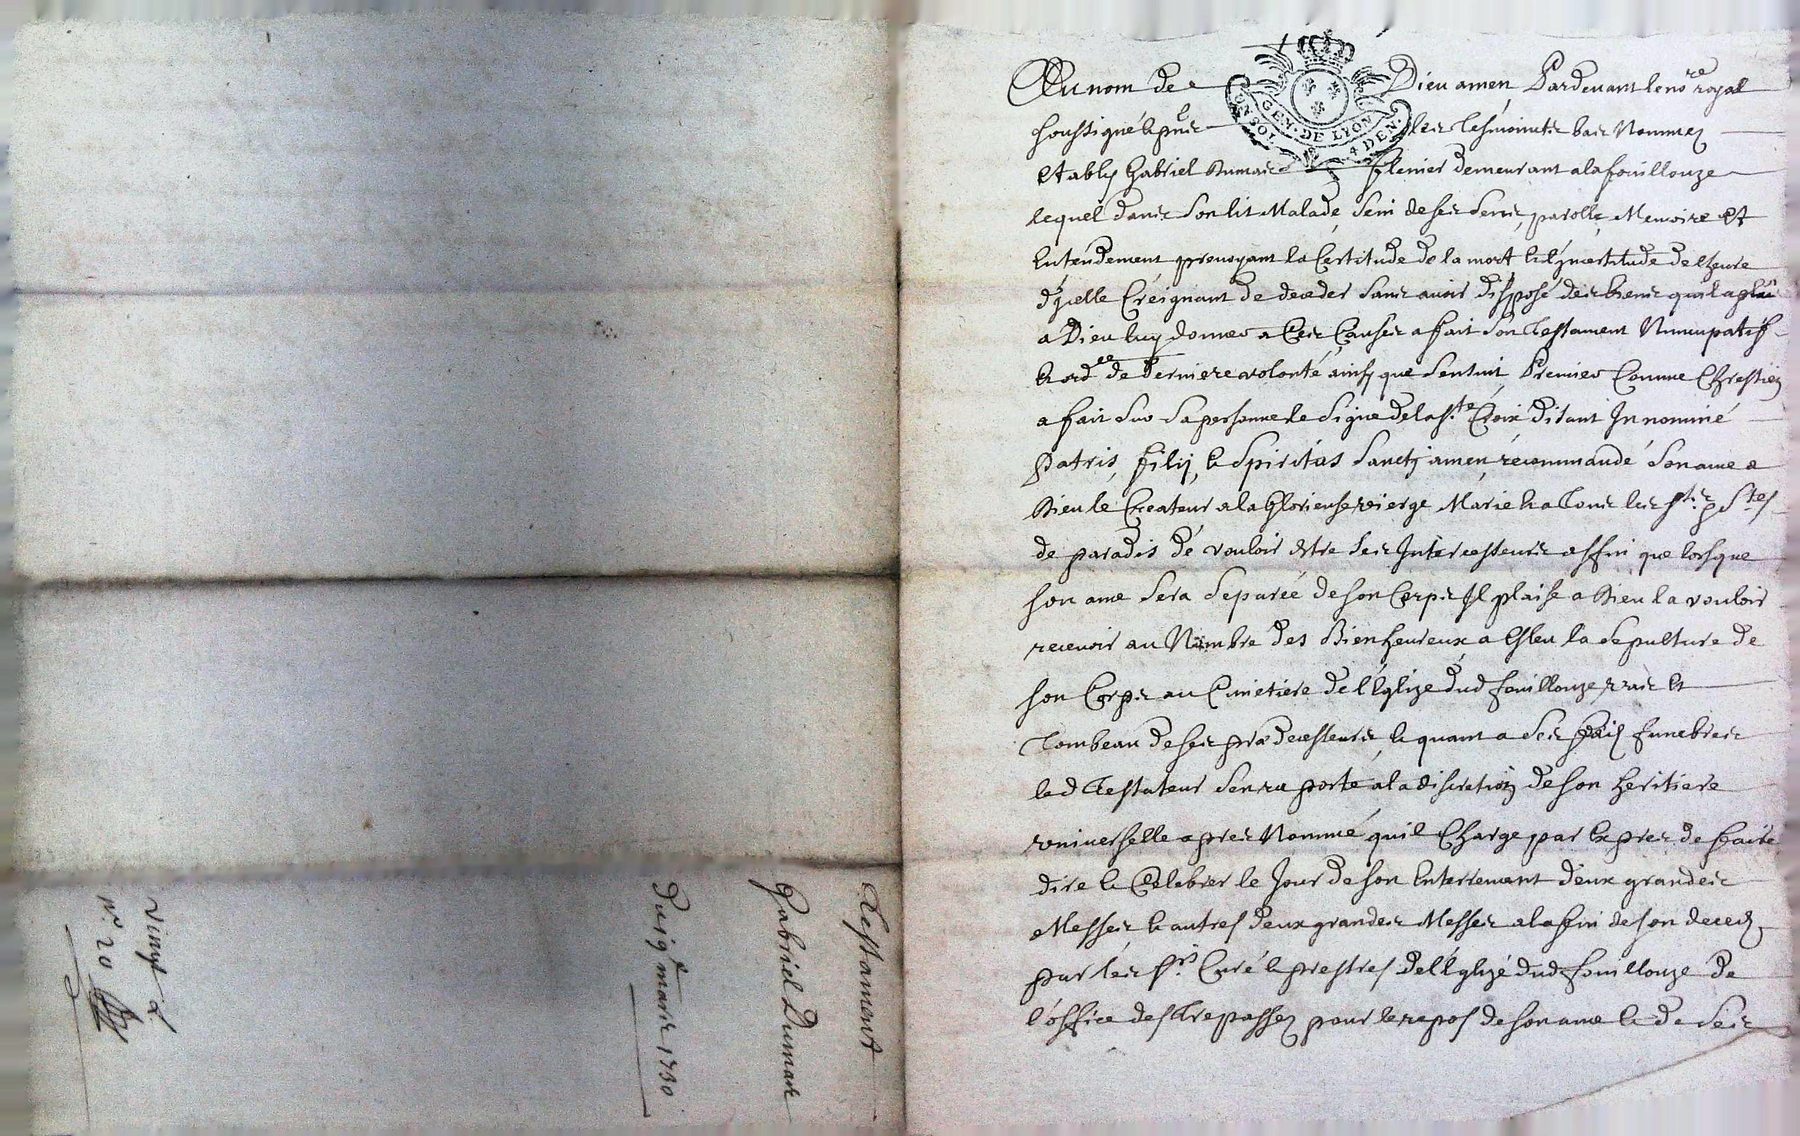 Au nom de Dieu amen Pardevant le no.re royal
soussigné & presens les tesmoins bas Nommez
Estably Gabriel Dumas demeurant a la fouillouze
lequel dans son lit Malade, sain de ses sens, parolle, Memoire et
Entendement prevoyant la Certitude de la mort & l'incertitude de l'heure
d'ycelle Creignant de deceder sans avoir disposé des biens quil a plû
a Dieu luy donner a Ces Causes a fait son Testament Nuncupatif
& ord.ce de derniere volonté ainsy que sensuit Premier Comme Chrestien
a fait sur sa personne le signe de la s.te Croix disant In nominé
Patris, filij, & Spiritûs Sancti amen, recommandé son ame a
Dieu le Createur a la Glorieuse vierge Marie & a Tous les s.ts & S.tes
de paradis de vouloir estre ses Intercesseurs affin que lorsque
son ame sera separée de son Corps Il plaise a Dieu la vouloir
recevoir au Nombre des Bienheureux a Esleu la sepulture de
son Corps au Cimetiere de l'Eglize dud fouillouze vas et
Tombeau de ses prædecesseurs, & quant a ses frais funebres
led Testateur sen raporte a la discretion de son heritiere
universelle apres Nommé quil Charge par Expres de faire
dire & Celebrer le Jour de son Enterrement deux grandes
Messes & autres deux grandes Messes a la fin de son decedz
par les s.rs Curé & prestres de l'Eglizé dud fouillouze de
l'office des Trepassez pour le repos de son ame & de ses
GEN. DE LYON
4 DEN.
Testament
Gabriel Dumas
Du 19e mars 1730
vingt
n° 20